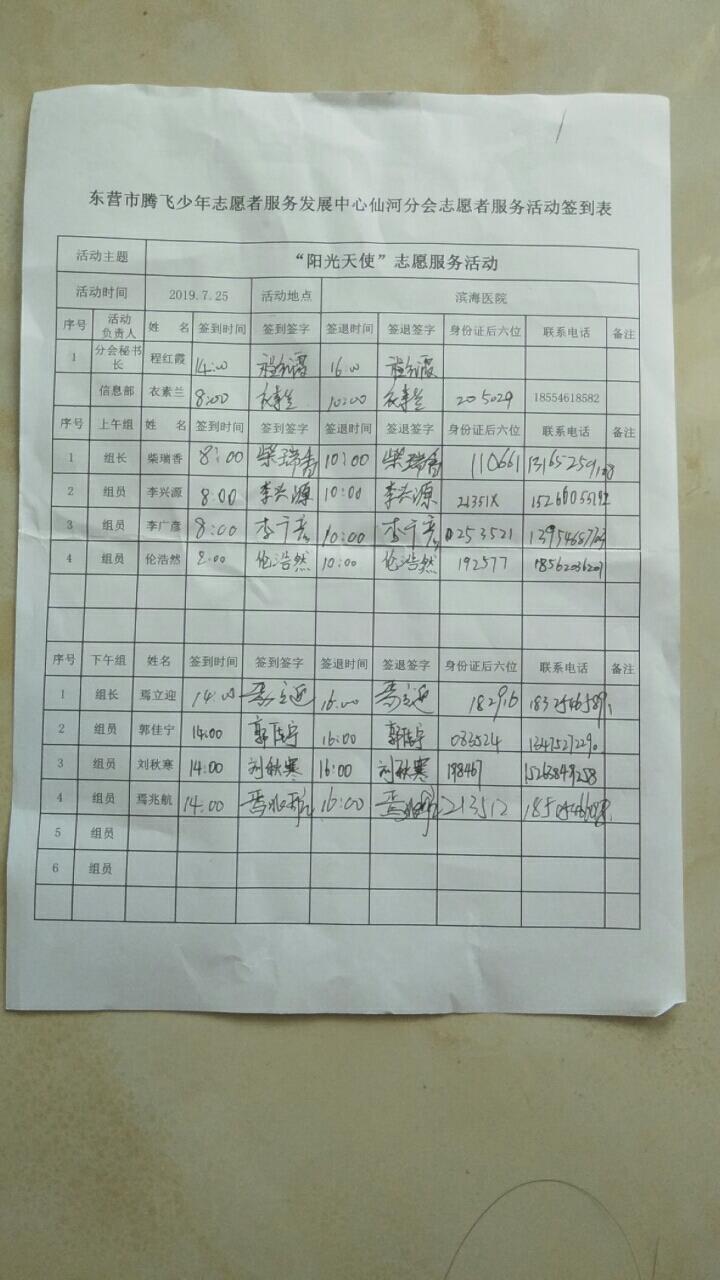 东营市腾飞少年志愿者服务发展中心仙河分会志愿者服务活动签到表
活动主题 “阳光天使”志愿服务活动
活动时间 2019.7.25 活动地点 滨海医院
序号 活动负责人 姓 名 签到时间 签到签字 签退时间 签退签字 身份证后六位 联系电话 备注
1 分会秘书长 程红霞 14:00 程红霞 16:00 程红霞
信息部 衣素兰 8:00 衣素兰 10:00 衣素兰 205029 18554618582
序号 上午组 姓 名 签到时间 签到签字 签退时间 签退签字 身份证后六位 联系电话 备注
1 组长 柴瑞香 8:00 柴瑞香 10:00 柴瑞香 110661
2 组员 李兴源 8:00 李兴源 10:00 李兴源 21351X
3 组员 李广彦 8:00 李广彦 10:00 李广彦 253521
4 组员 伦浩然 8:00 伦浩然 10:00 伦浩然 192577 18562036201
序号 下午组 姓名 签到时间 签到签字 签退时间 签退签字 身份证后六位 联系电话 备注
1 组长 焉立迎 14:00 焉立迎 16:00 焉立迎 182916
2 组员 郭佳宁 14:00 郭佳宁 16:00 郭佳宁 083524 13475272290
3 组员 刘秋寒 14:00 刘秋寒 16:00 刘秋寒 198467 15263849258
4 组员 焉兆航 14:00 焉兆航 16:00 焉兆航 213512
5 组员
6 组员